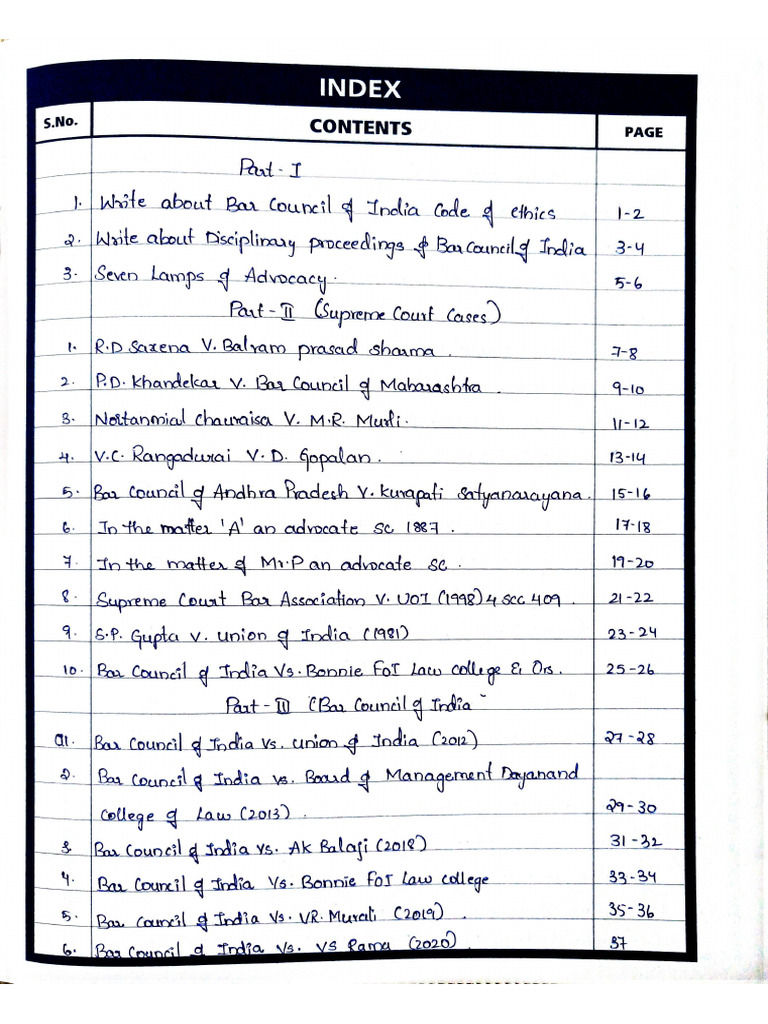 INDEX
S.No. CONTENTS PAGE
Part - I
1. Write about Bar Council of India Code of ethics 1-2
2. Write about Disciplinary proceedings of Bar Council of India 3-4
3. Seven Lamps of Advocacy. 5-6
Part - II (Supreme Court Cases)
1. R.D Saxena V. Balram prasad sharma. 7-8
2. P.D. Khandekar V. Bar Council of Maharashtra. 9-10
3. Noratanmial Chauraisa V. M.R. Murli. 11-12
4. V.C. Rangadurai V. D. Gopalan. 13-14
5. Bar Council of Andhra Pradesh V. Kurapati Satyanarayana. 15-16
6. In the matter 'A' an advocate SC 1887. 17-18
7. In the matter of Mr.P an advocate SC. 19-20
8. Supreme Court Bar Association V. UOI (1998) 4 SCC 409. 21-22
9. S.P. Gupta v. union of India (1981) 23-24
10. Bar Council of India Vs. Bonnie FOI Law college & Ors. 25-26
Part - III (Bar Council of India
01. Bar Council of India Vs. union of India (2012) 27-28
2. Bar Council of India vs. Board of Management Dayanand
College of Law (2013). 29-30
3. Bar Council of India Vs. Ak Balaji (2018) 31-32
4. Bar Council of India Vs. Bonnie FOI Law college 33-34
5. Bar Council of India Vs. VR. Murati (2019). 35-36
6. Bar Council of India Vs. VS Ramu (2020). 37